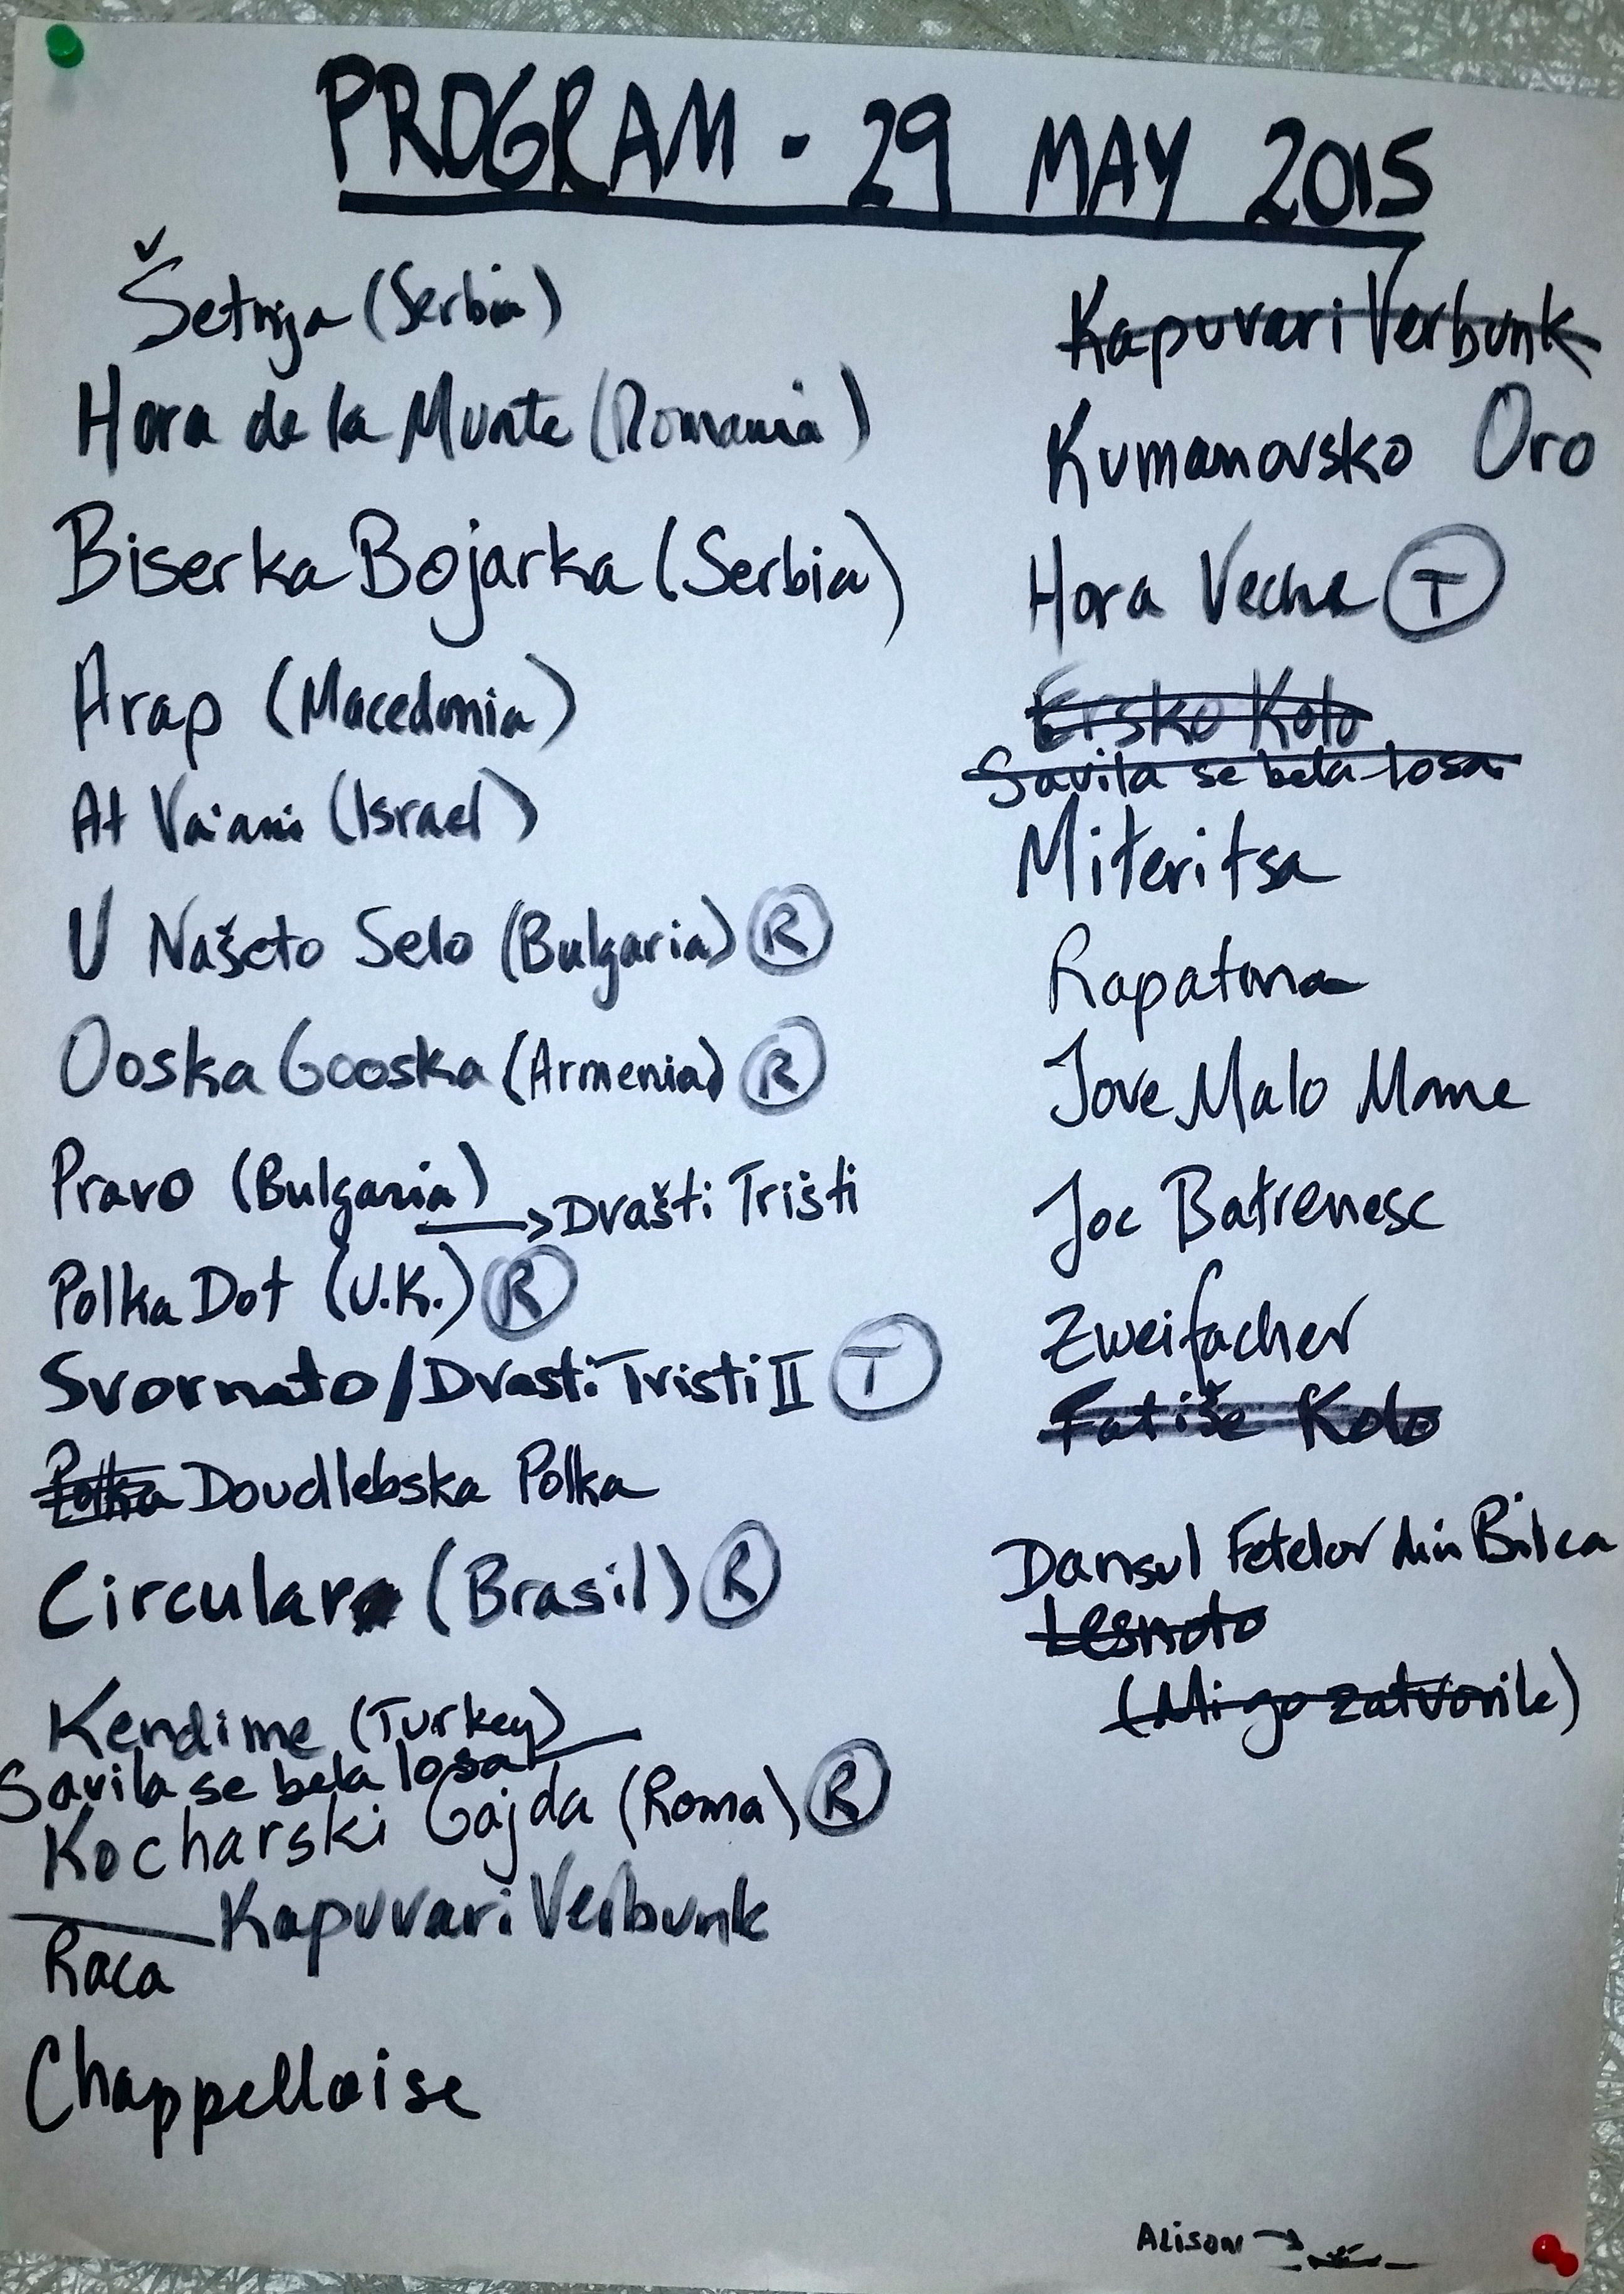 PROGRAM - 29 MAY 2015
Šetnja (Serbia)
Hora de la Munte (Romania)
Biserka Bojarka (Serbia)
Arap (Macedonia)
At Va'ani (Israel)
U Našeto Selo (Bulgaria) R
Ooska Gooska (Armenia) R
Pravo (Bulgaria)
→ Dvašti Trišti
Polka Dot (U.K.) R
Svornato/Dvasti Tristi II T
Polka Doudlebska Polka
Circular (Brasil) R
Kendime (Turkey)
Savila se bela losa
Kocharski Gajda (Roma) R
Kapuvari Verbunk
Raca
Chappelloise
Kapuvari Verbunk
Kumanovsko Oro
Hora Veche T
Ersko Kolo
Savila se bela losa
Miteritsa
Rapatona
Jove Malo Mome
Joc Batrenesc
Zweifacher
Fatiše Kolo
Dansul Fetelor din Bilca
Lesnoto
(Mi go zatvorile)
Alison →